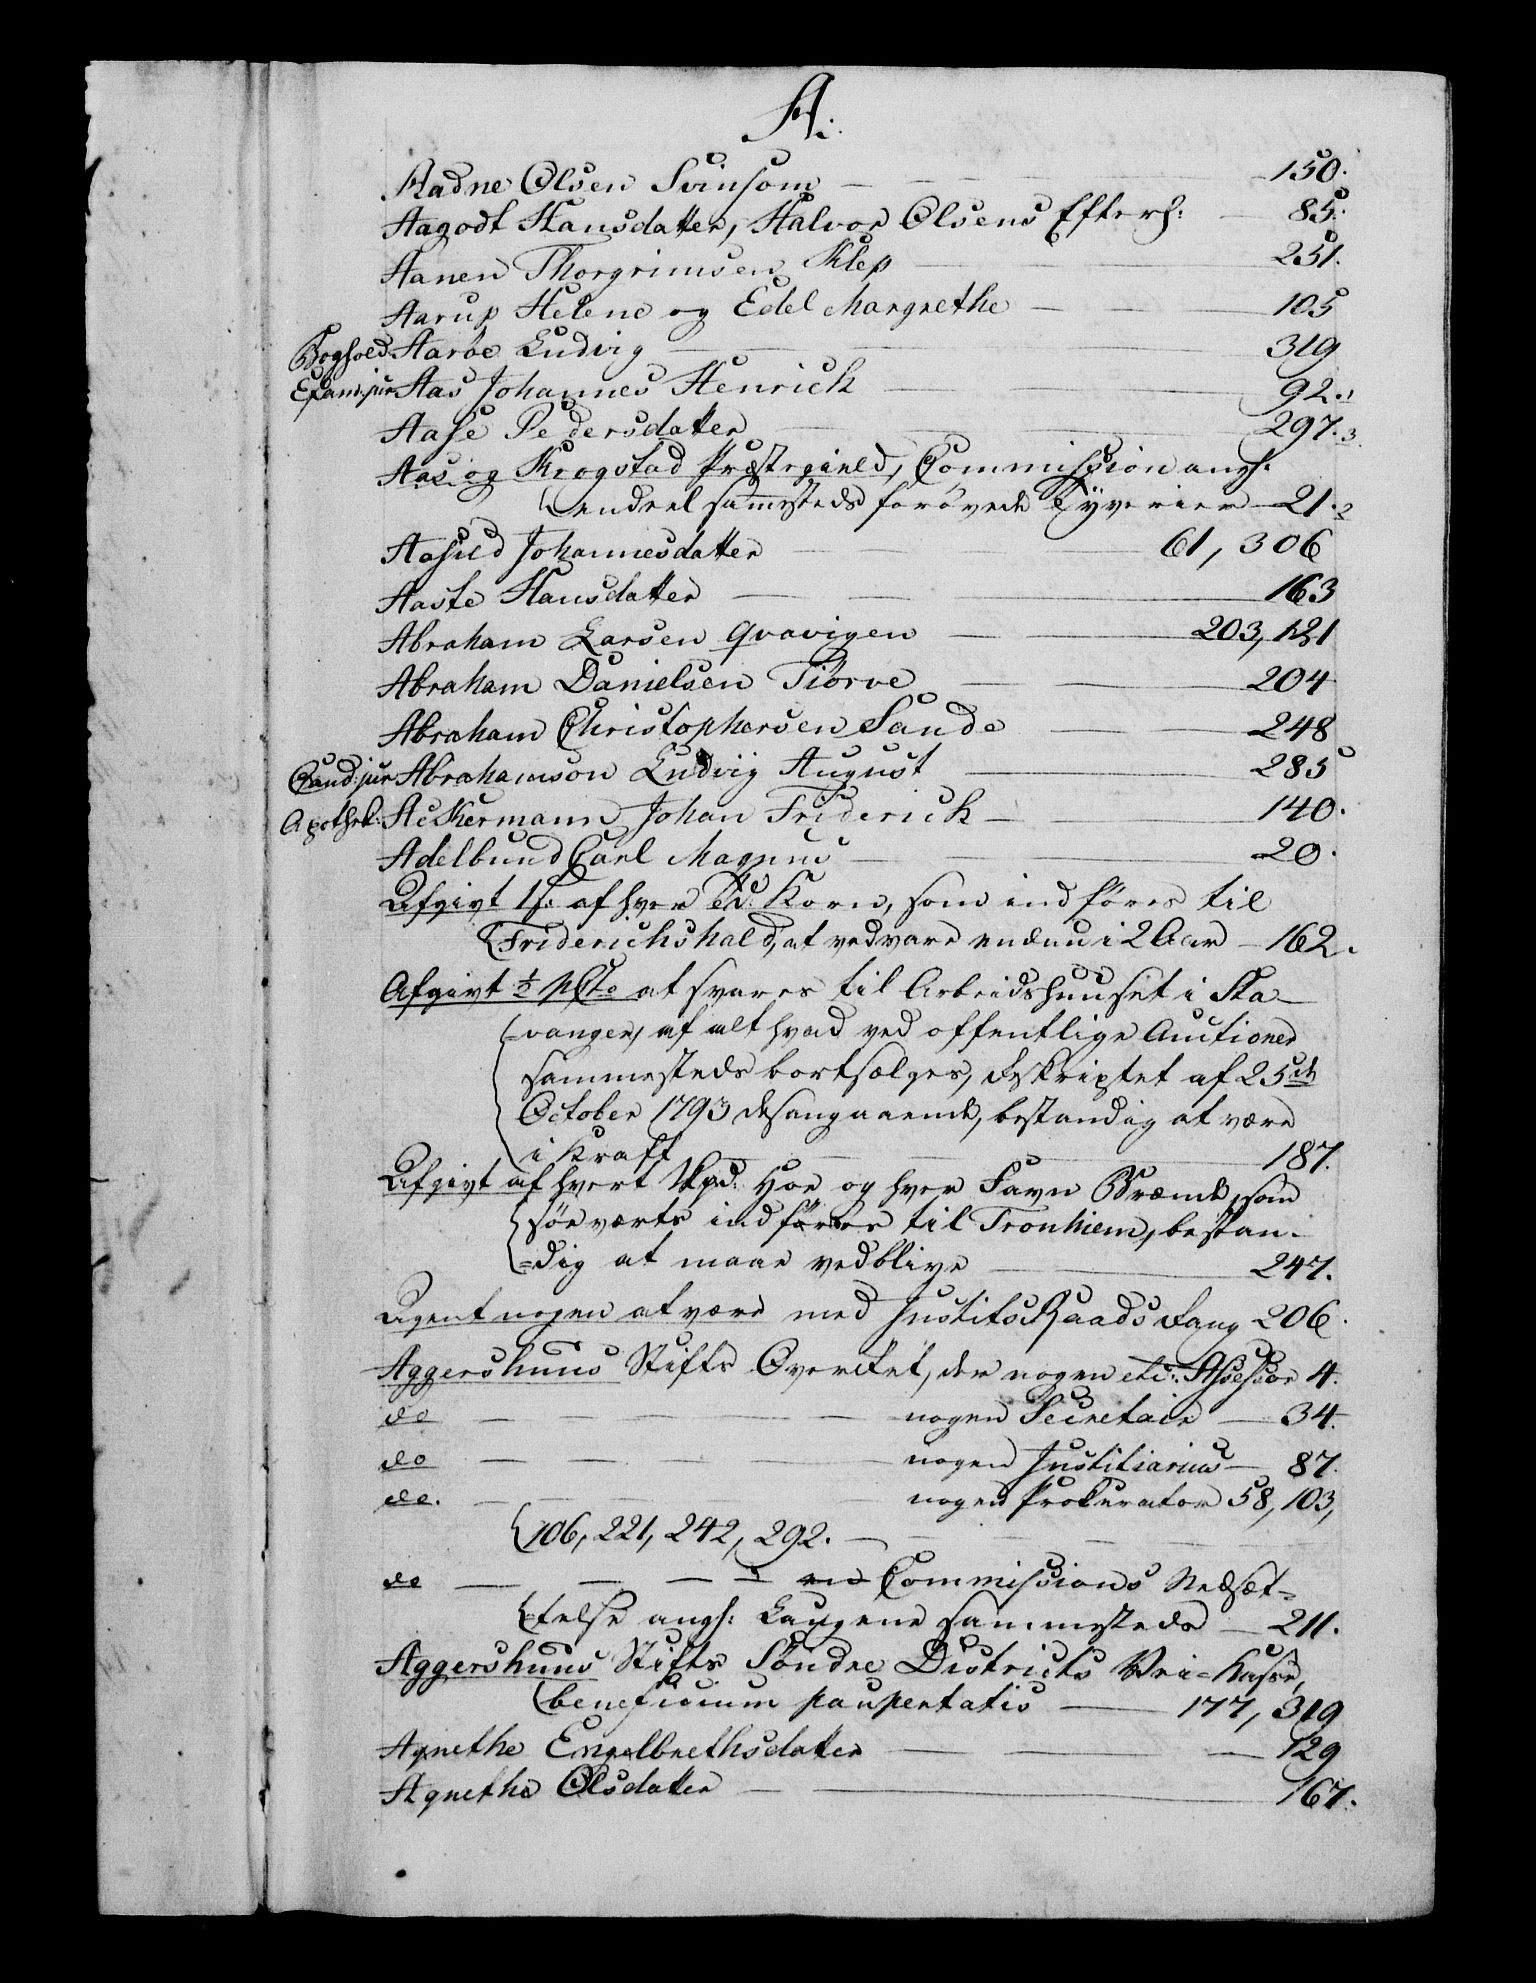 A.
Aadne Olsen Svinsom — 150.
Aagodt Hansdatter, Halvor Olsens Efterl: — 85.
Aanen Thorgrimsen Klep — 251.
Aarup Helene og Edel Margrethe — 105
Boghold. Aarøe Ludvig — 319
Exam: jur Aas Johannes Henrich — 92.
Aase Pedersdatter — 297.
Aas og Krogstad Præstegield, Commission angl.
endeel sammesteds forøvede Tyverier — 21.
Aasild Johannesdatter — 61, 306
Aaste Hansdatter — 163
Abraham Larsen Qvavigen — 203, 121
Abraham Danielsen Tiørve — 204
Abraham Christophersen Sande — 248
Cand: jur Abrahamson Ludvig August — 285
Apothek: Ackermann Johan Friderich — 140.
Adelbund Carl Magnus — 20.
Afgivt 1 s. af hver Td: Korn, som indføres til
Friderichshald, at vedvare endnu i 2 Aar — 162.
Afgivt ½ pCto at svares til Arbeidshuuset i Sta-
vanger, af alt hvad ved offentlige Auctioner
sammesteds bortsælges, Reskriptet af 25de
October 1793 desangaaende, bestandig at være
i Kraft — 187.
Afgivt af hvert Skpd: Høe og hver Favn Brænde, som
søeværts indføres til Tronhiem, bestan-
=dig at maae vedblive — 247.
Agent nogen at være med JustitsRaads Rang 206.
Aggershuus Stifts Overret, der nogen etc: Assessor 4.
do — nogen Secretair — 34.
do — nogen Justitiarius — 87.
do. — nogen Prokurator 58, 103,
106, 221, 242, 292. —
do — en Commissions Nedsæt=
=telse angl: Laugene sammesteds — 211.
Aggershuus Stifts Søndre Districts Vei=Kasse,
beneficium paupertatis — 177, 319
Agnethe Engelbrethsdatter — 129
Agnethe Olsdatter — 167.